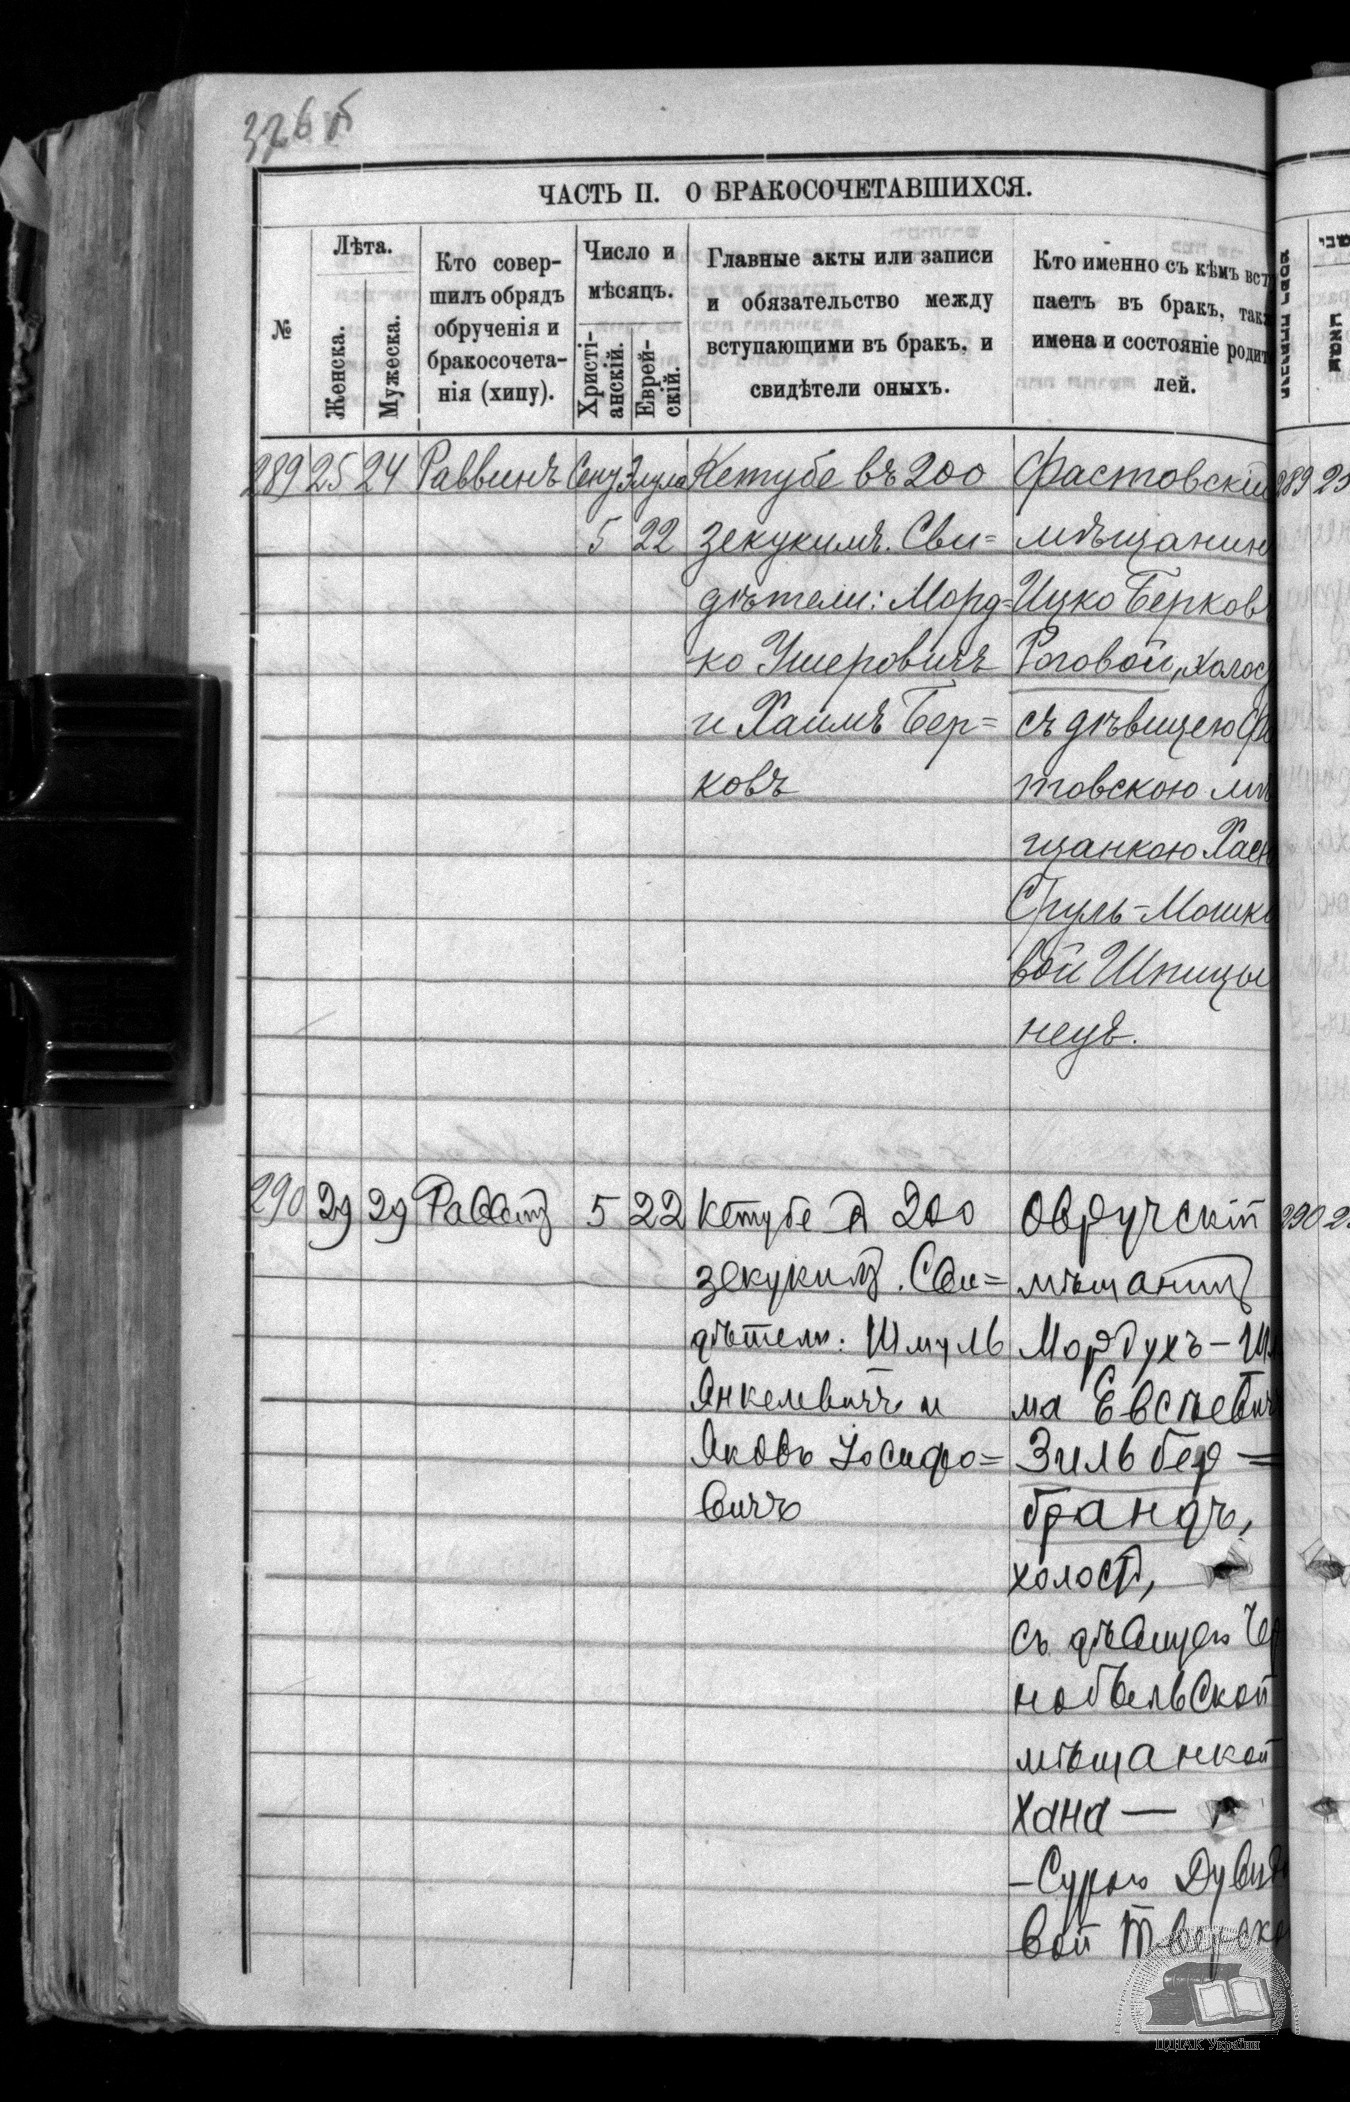 326 б
ЧАСТЬ II. О БРАКОСОЧЕТАВШИХСЯ.
№
Лѣта.
Женска.
Мужеска.
Кто совер-
шилъ обрядъ
обрученія и
бракосочета-
нія (хипу).
Число и
мѣсяцъ.
Христі-
анскій.
Еврей-
скій.
Главные акты или записи
и обязательство между
вступающими въ бракъ, и
свидѣтели оныхъ.
Кто именно съ кѣмъ вст
паетъ въ бракъ, так
имена и состояніе родит
лей.
289 25 24 Раввинъ Сент Элула
5 22
Кетубе въ 200
зекукимъ. Сви=
дѣтели: Морд=
ко Ушеровичъ
и Хаимъ Бер=
ковъ
Фастовскій
мѣщанин
Ицко Берков
Роговой, холос
съ дѣвицею Фа
товскою мѣ
щанкою Хасе
Сруль-Мошко
вой Шпицы
нецъ.
290 29 29 Раввинъ 5 22
Кетубе въ 200
зекукимъ. Сви=
дѣтели: Шмуль
Янкелевичъ и
Яковъ Іосифо=
вичъ
Овручскій
мѣщанинъ
Мордухъ-Шл
ма Евсѣевич
Зильбер=
брандъ,
холостъ,
съ дѣвицею Чер
нобыльской
мѣщанкой
Хана —
-Сурою Дувидо
вой Тверско
289 25
290 2
ЦДІАК України